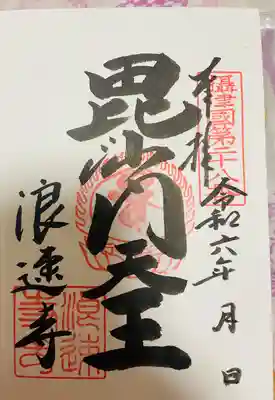 奉拝
攝津國第二十八
令和六年 月 日
毘沙門天王
浪速寺